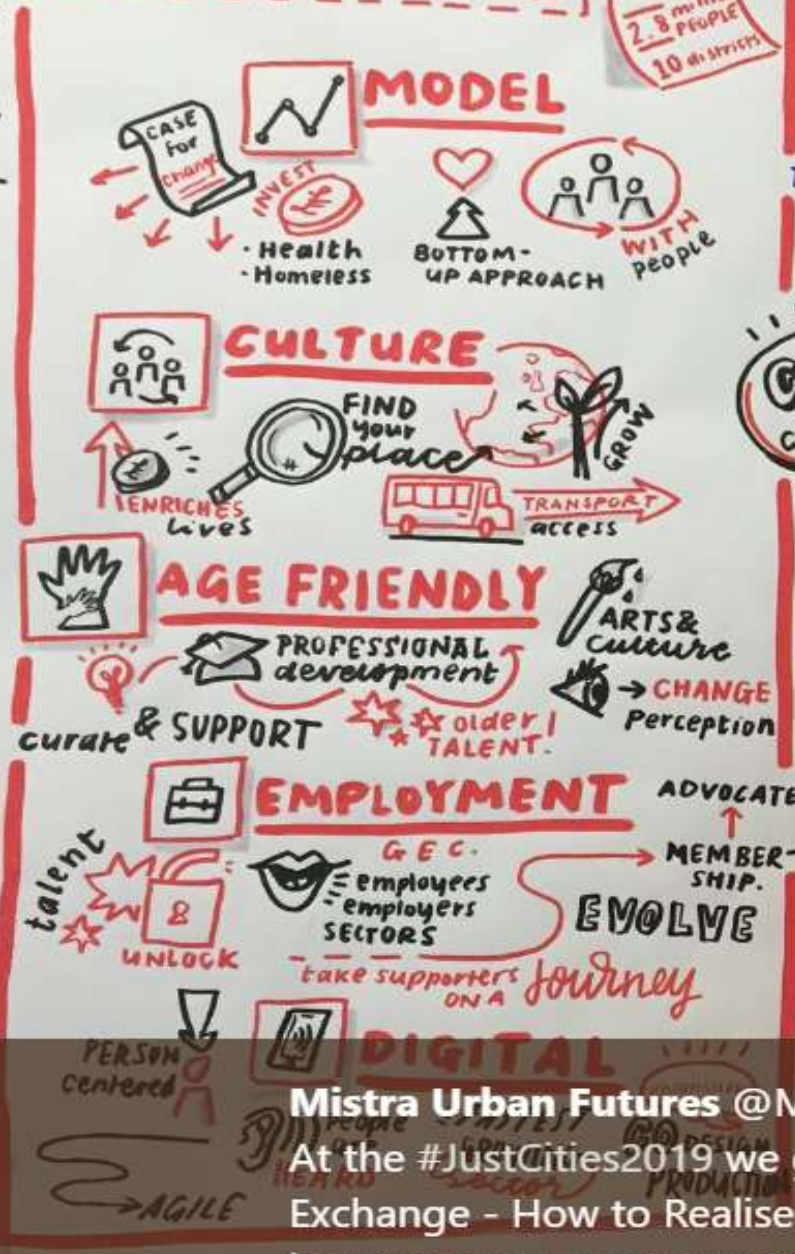 2.8
PEOPLE
10 districts
MODEL
CASE
For
Change
INVEST
• Health
• Homeless
BOTTOM-
UP APPROACH
WITH
people
CULTURE
FIND
your
place
GROW
ENRICHES
Lives
TRANSPORT
access
AGE FRIENDLY
PROFESSIONAL
development
ARTS &
culture
→ CHANGE
Perception
curate & SUPPORT
older
TALENT.
EMPLOYMENT
ADVOCATE
MEMBER-
SHIP.
talent
UNLOCK
G E C.
employees
employers
SECTORS
EVOLVE
take supporters
ON A Journey
DIGITAL
PERSON
Centered
People
HEARD
sector
AGILE
Mistra Urban Futures @M
At the #JustCities2019 we
Exchange - How to Realise